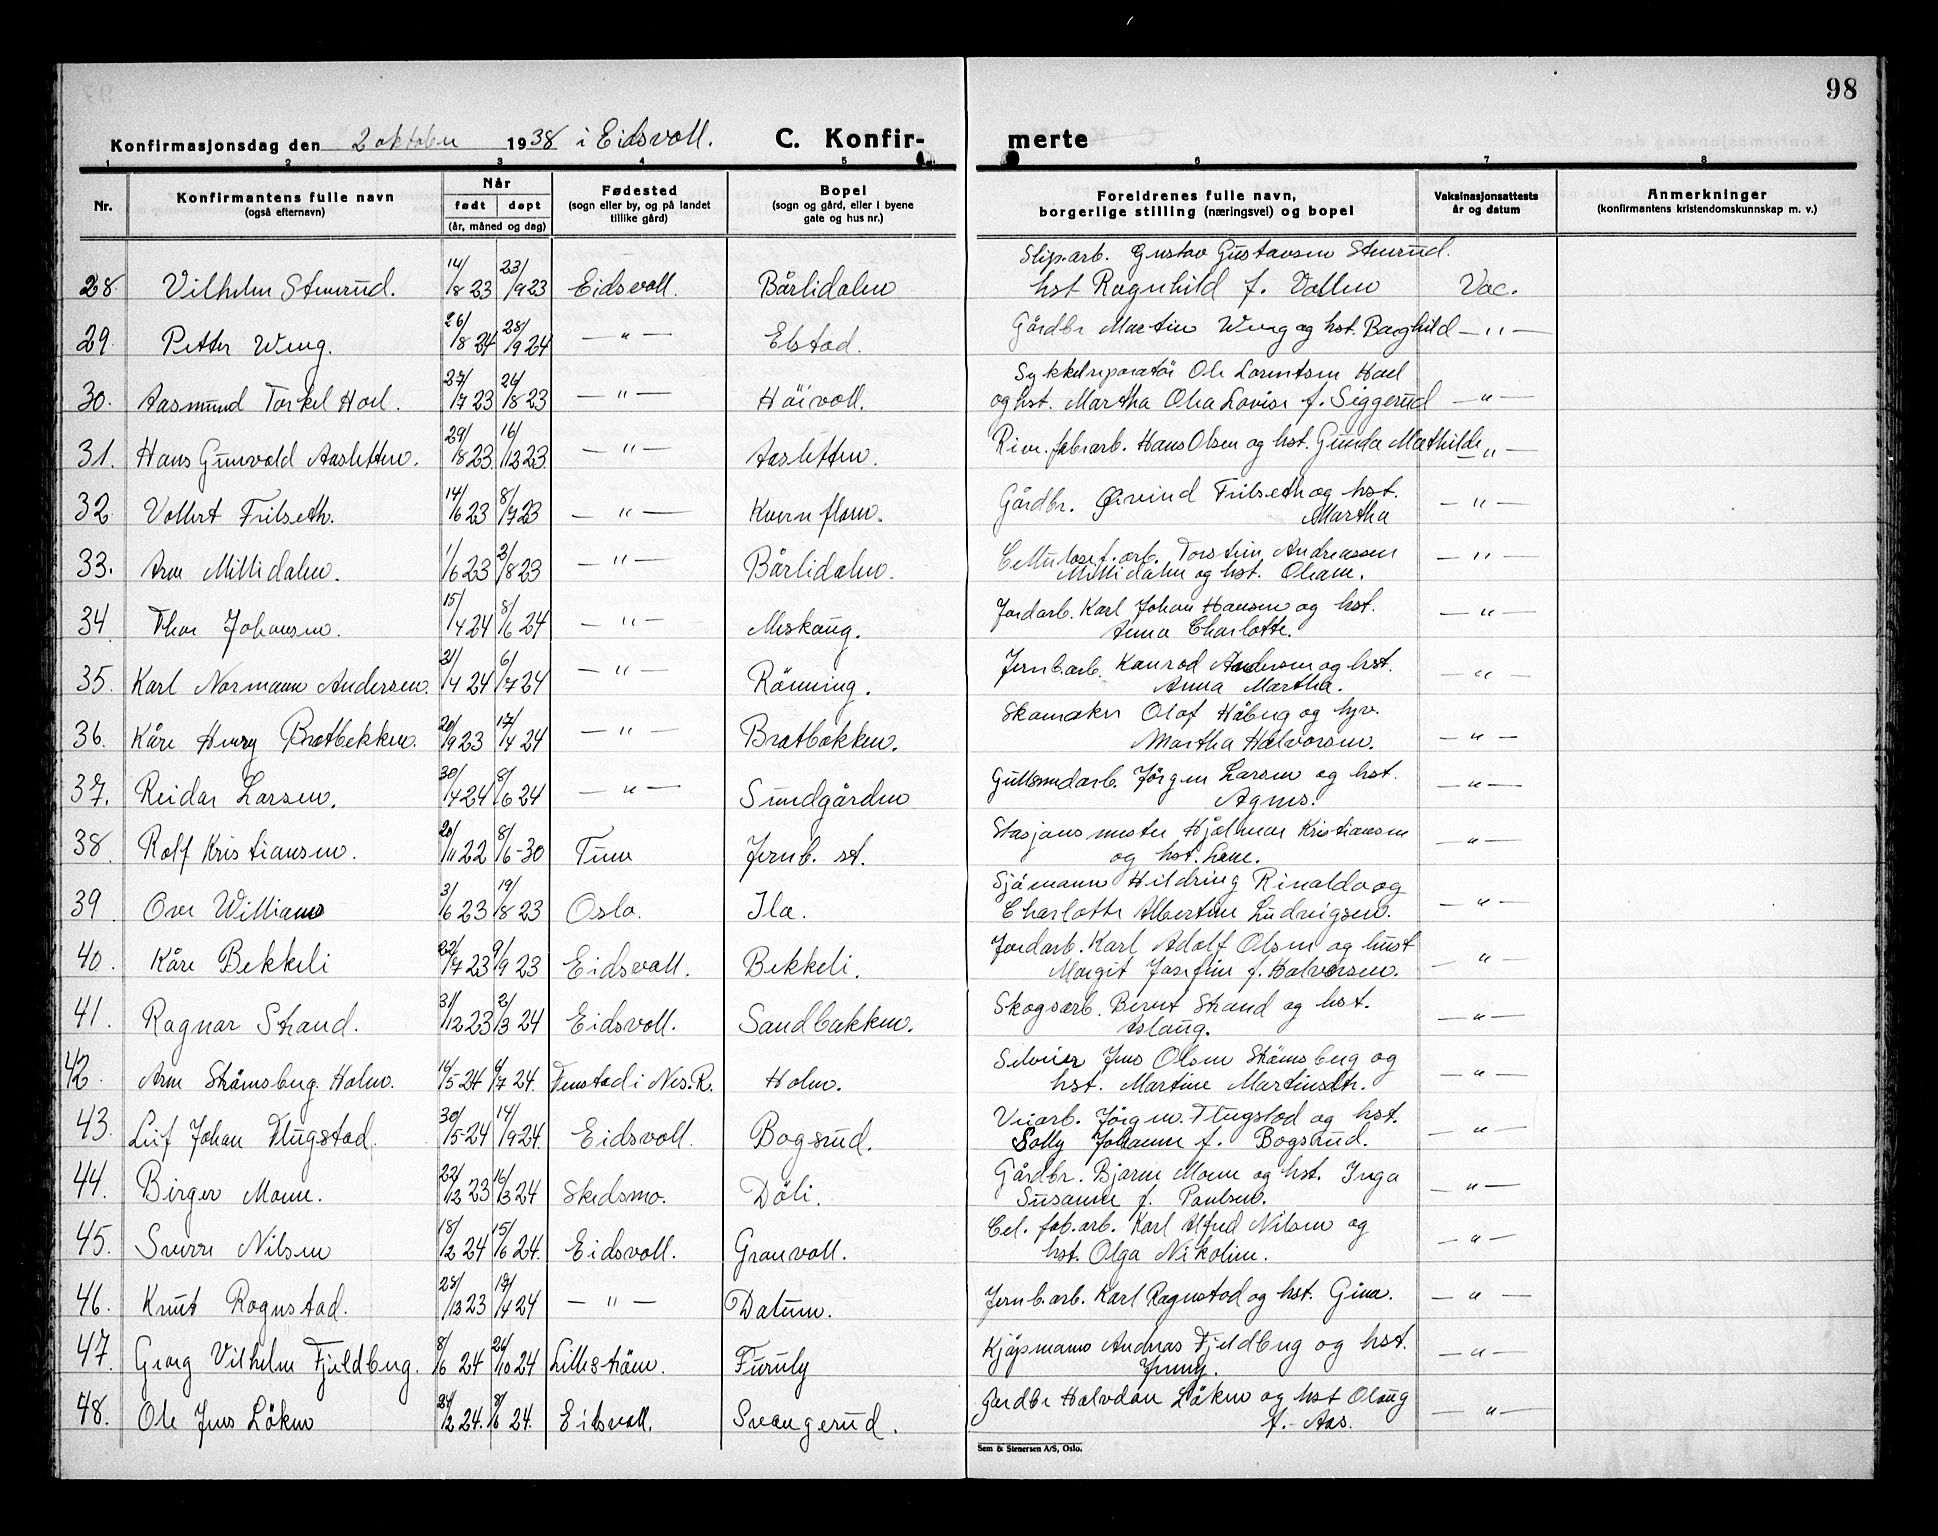 98
Konfirmasjonsdag den 2 oktober 1938 i Eidsvoll. C. Konfir- merte
1 2 3 4 5 6 7 8
Nr. Konfirmantens fulle navn (også efternavn) Når født døpt (år, måned og dag) Fødested (sogn eller by, og på landet tillike gård) Bopel (sogn og gård, eller i byene gate og hus nr.) Foreldrenes fulle navn, borgerlige stilling (næringsvei) og bopel Vaksinasjonsattests år og datum Anmerkninger (konfirmantens kristendomskunnskap m. v.)
Sliparb. Gustav Gustavsen Stenrud.
28. Vilhelm Stenrud. 14/8 23 23/9 23 Eidsvoll. Bårlidalen hst Ragnhild f. Dallen Vac.
29. Petter Weng. 26/8 24 28/9 24 — " — Ebstad. Gårdbr Martin Weng og hst. Borghild — " —
Sykkelreparatör Ole Lorentsen Hoel
30. Aasmund Torkel Hoel. 27/7 23 26/8 23 — " — Höivoll. og hst. Martha Olea Lovise f. Siggerud — " —
31. Hans Gunvald Aasletten. 29/8 23 16/12 23 — " — Aasletten. Rive. fab.arb. Hans Olsen og hst. Gunda Mathilde — " —
32 Vollert Frilseth. 14/6 23 8/7 23 — " — Kvernflom. Gårdbr. Øivind Frilseth og hst.
Martha — " —
33. Arne Millidalen. 1/6 23 2/8 23 — " — Bårlidalen. Cellulosef.arb. Torstein Andreassen
Millidalen og hst. Oleane. — " —
34 Thor Johansen. 15/4 24 8/6 24 — " — Meskaug. Jordarb. Karl Johan Hansen og hst.
Anna Charlotte. — " —
35. Karl Normann Andersen. 21/4 24 6/7 24 — " — Rönning. Jernb.arb. Konrad Andersen og hst.
Anna Martha. — " —
36. Kåre Henry Bratbekken. 20/9 23 17/4 24 — " — Bratbakken. Skomaker Olaf Håberg og hjv.
Martha Halvorsen. — " —
37. Reidar Larsen. 30/4 24 8/6 24 — " — Sundgården Gullsmedarb. Jörgen Larsen og hst.
Agnes. — " —
38. Rolf Kristiansen. 20/11 22 8/6-30 Tune Jernb. st. Stasjonsmester Hjalmar Kristiansen
og hst. Lene. — " —
39 Over Williams 3/6 23 19/8 23 Oslo. Ila. Sjömann Hildring Rinaldo og
Charlotte Albertine Ludvigsen. — " —
40. Kåre Bekkeli 22/7 23 9/9 23 Eidsvoll. Bekkeli. Jordarb. Karl Adolf Olsen og hust
Margit Josefine f. Halvorsen. — " —
41. Ragnar Strand. 31/12 23 2/3 24 Eidsvoll. Sandbakken. Skogsarb. Bernt Strand og hst.
Aslaug. — " —
42. Arne Strömsberg Holm. 16/5-24 6/7 24. Fenstad i Nes.R. Holm. Selveier Jens Olsen Strömsberg og
hst. Martine Martinseth. — " —
43. Leif Johan Flugstad. 30/5-24 14/9 24. Eidsvoll. Bogsrud. Veiarb. Jörgen Flugstad og hst.
Solly Johanne f. Bogsrud. — " —
44. Birger Moene. 22/12 23 16/3 24 Skedsmo. Döli. Gårdbr. Bjarne Moene og hst. Inga
Susanne f. Paulsen. — " —
45. Sverre Nilsen 18/2 24 15/6 24. Eidsvoll. Granvoll. Cel. fab.arb. Karl Alfred Nilsen og
hst. Olga Nikoline. — " —
46. Knut Rognstad. 28/12 23 18/4 24 — " — Datum. Jernb.arb. Karl Ragnstad og hst. Gina. — " —
47. Georg Vilhelm Fjeldberg. 8/6 24 26/10 24 Lilleström. Furuly Kjöpmann Andreas Fjeldberg og hst.
Jenny. — " —
48. Ole Jens Löken 24/2 24. 8/6 24. Eidsvoll. Svangerud. Jordbr Halvdan Löken og hst Olaug
f. Aas. — " —
Sem & Stenersen A/S, Oslo.